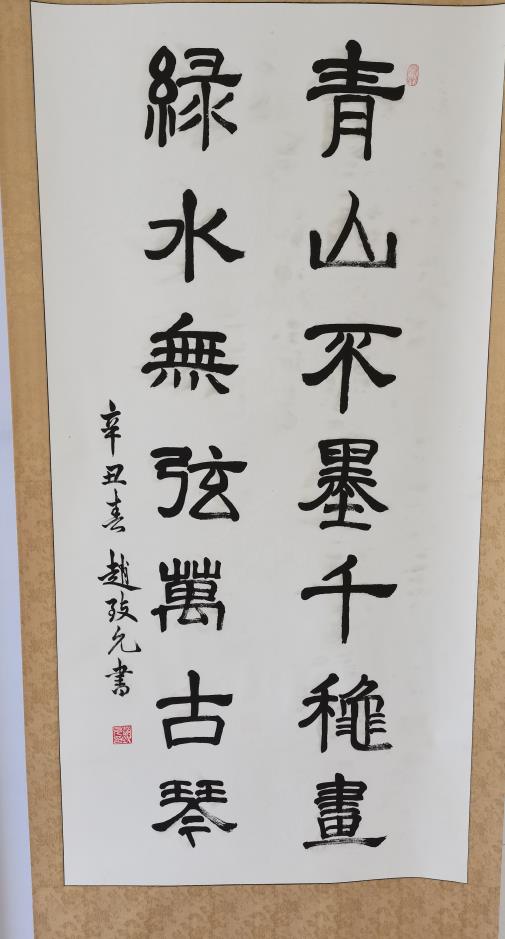 青山不墨千穐畫
緑水無弦萬古琴
辛丑春 趙致允書